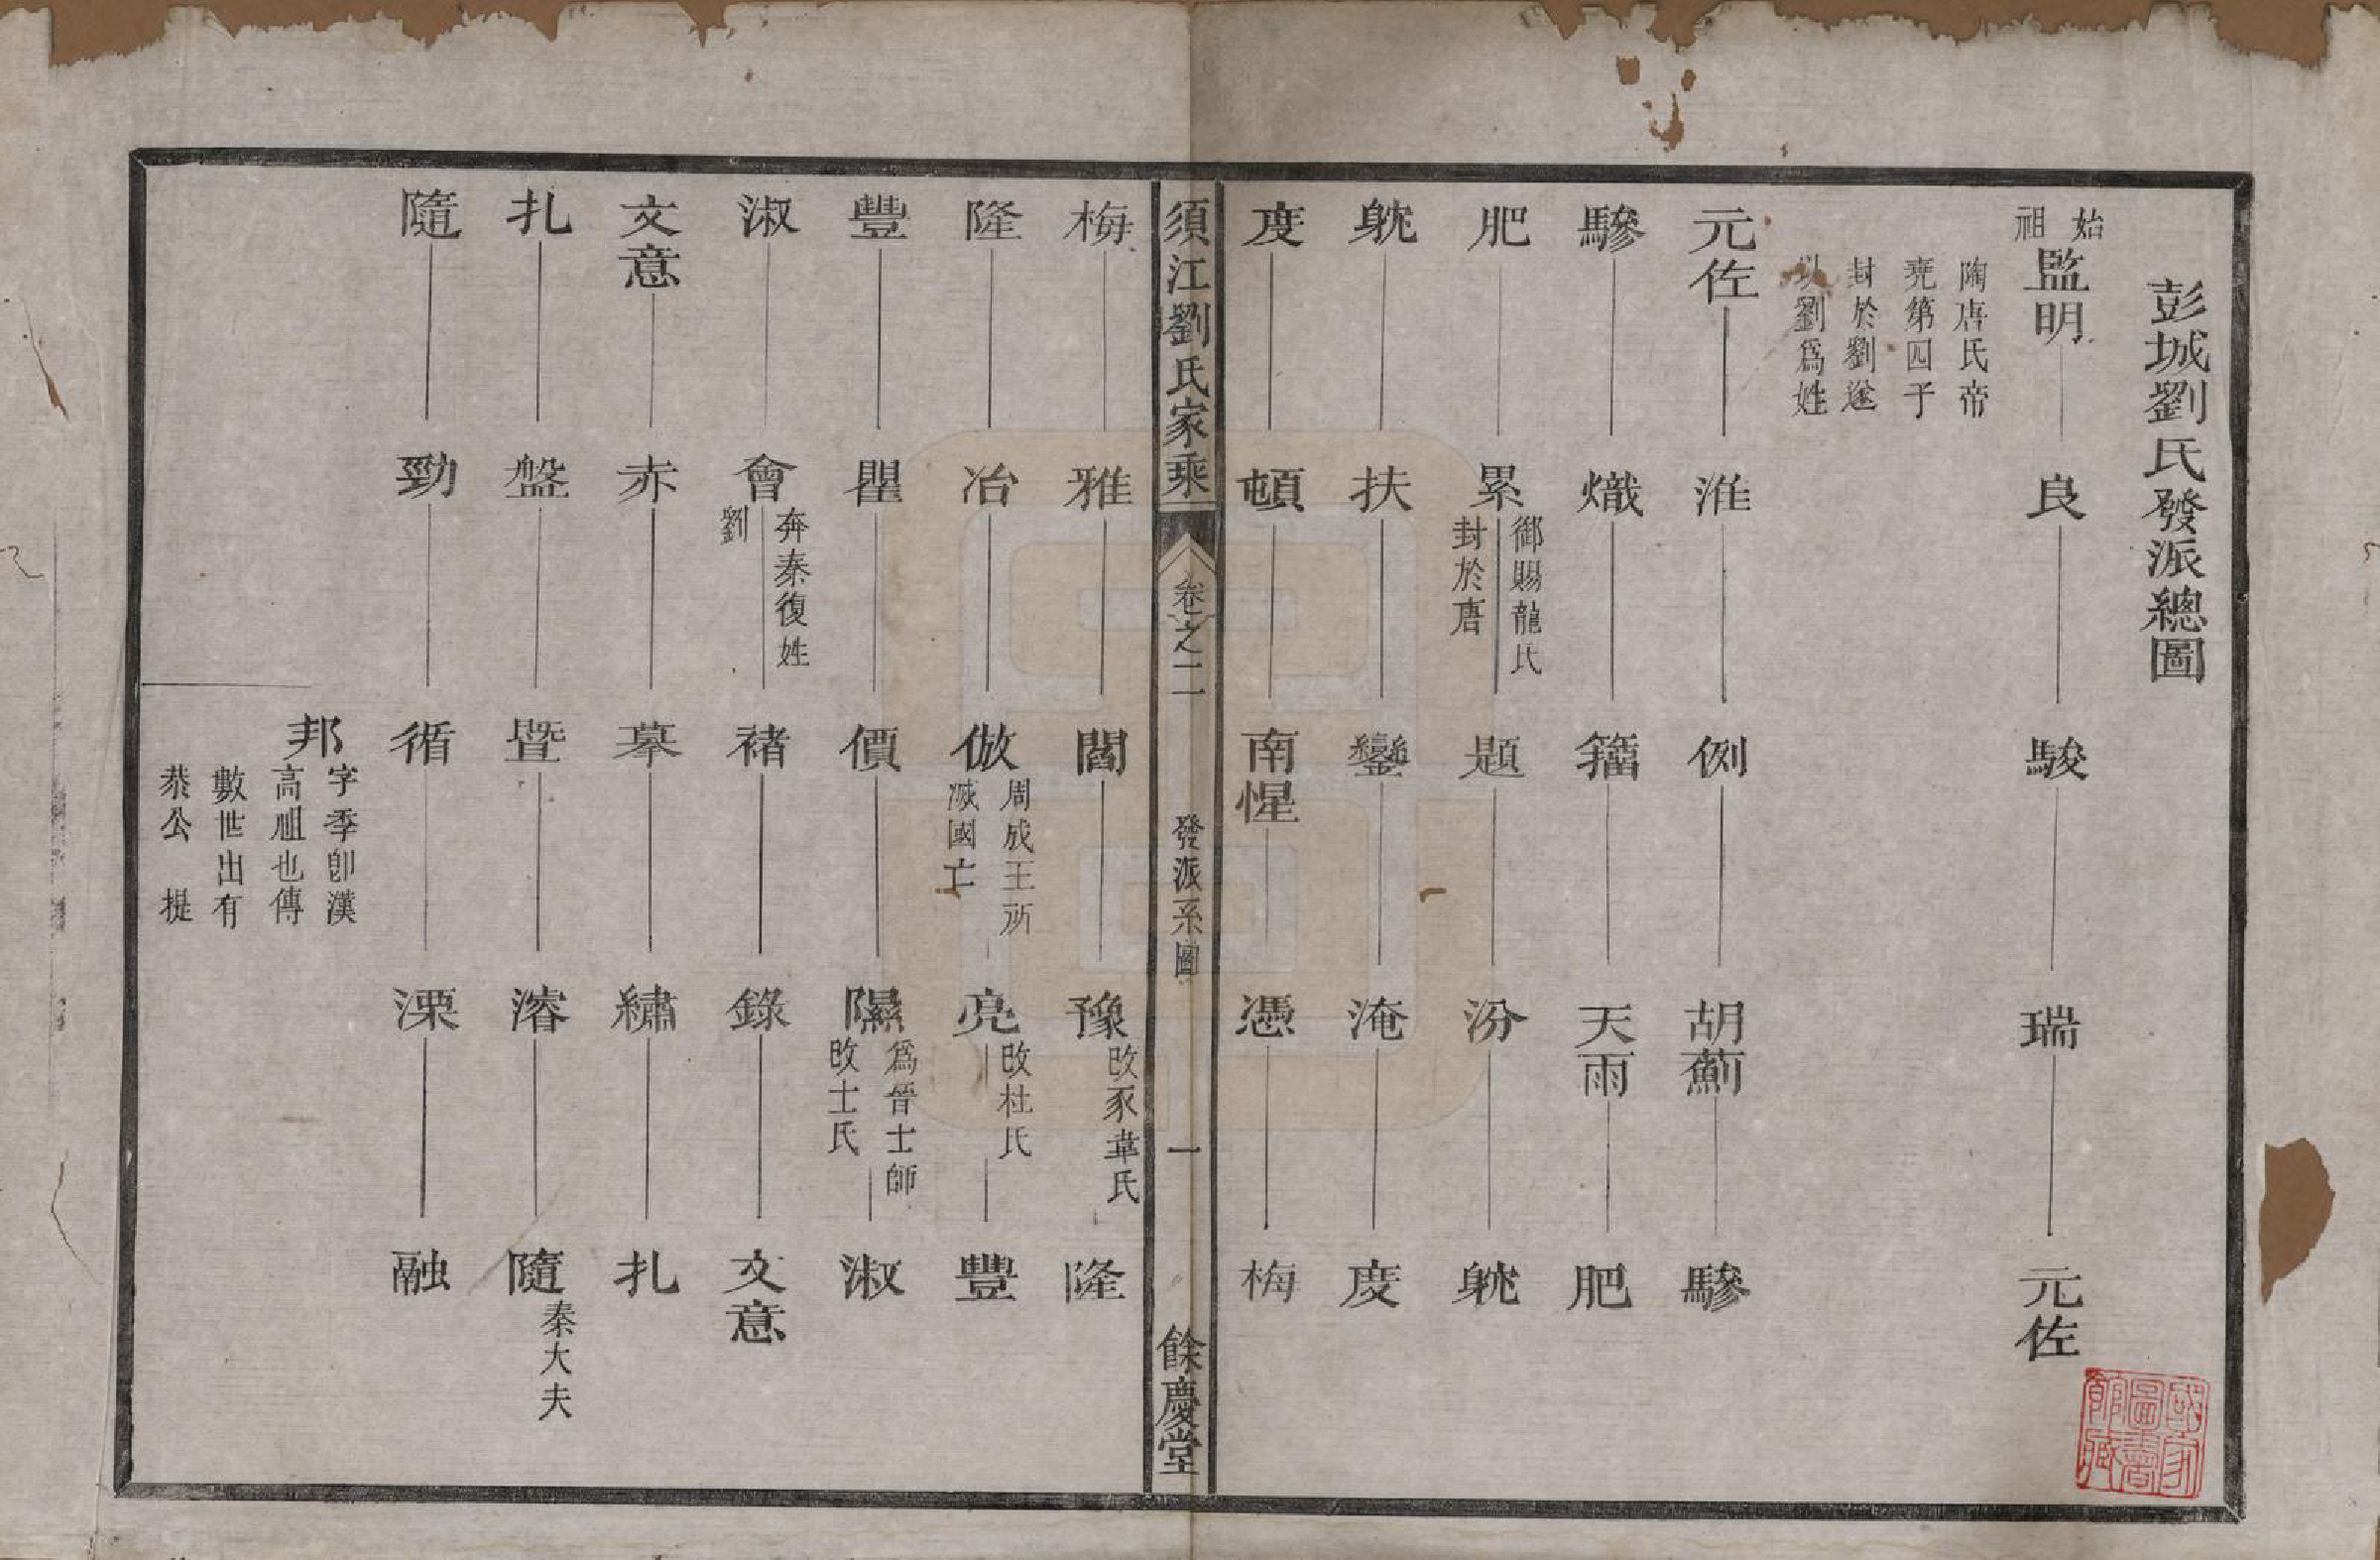 彭城劉氏發派總圖
始祖
監明
陶唐氏帝
堯第四子
封於劉遂
以劉爲姓
良
駿
瑞
元佐
元佐
淮
例
胡薊
驂
驂
熾
籕
天雨
肥
肥
累
御賜龍氏
封於唐
題
汾
躭
躭
扶
鑾
淹
度
度
頓
南惺
憑
梅
須江劉氏家乘
卷之二
發派系圖
一
餘慶堂
梅
雅
閻
豫
改豕韋氏
隆
隆
冶
倣
周成王所
滅國亡
亮
改杜氏
豐
豐
瞿
價
隰
爲晉士師
改士氏
淑
淑
會
奔秦復姓
劉
褚
錄
文意
文意
赤
摹
繡
扎
扎
盤
暨
濬
隨
秦大夫
隨
勁
循
溧
融
邦
字季卽漢
高祖也傳
數世出有
恭公 提
國家圖書館藏